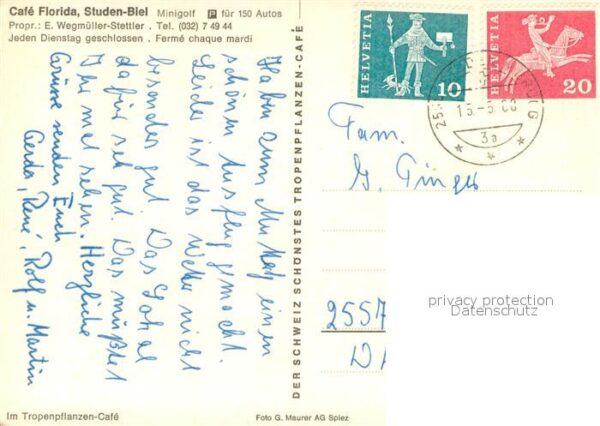 Café Florida, Studen-Biel Minigolf P für 150 Autos
Propr.: E. Wegmüller-Stettler . Tel. (032) 7 49 44
Jeden Dienstag geschlossen . Fermé chaque mardi
Haben zum Muttertag einen
schönen Ausflug gemacht.
Leider ist das Wetter nicht
besonders gut. Das Lokal
dafür sehr gut. Das müßtet
Ihr mal sehen. Herzliche
Grüsse senden Euch
Gerda, René, Rolf u. Martin
DER SCHWEIZ SCHÖNSTES TROPENPFLANZEN-CAFÉ
HELVETIA
10
HELVETIA
20
3a
Fam.
G.
2557
privacy protection
Datenschutz
Im Tropenpflanzen-Café
Foto G. Maurer AG Spiez